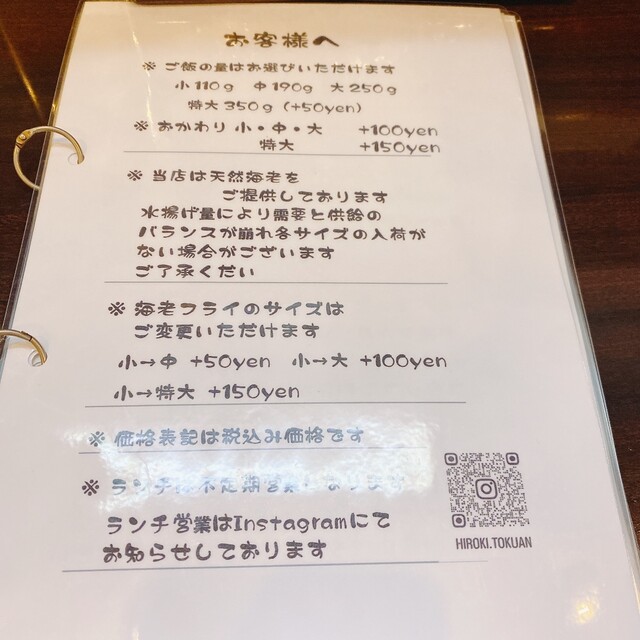 お客様へ
※ ご飯の量はお選びいただけます
小110g 中190g 大250g
特大350g (+50yen)
※ おかわり 小・中・大 +100yen
特大 +150yen
※ 当店は天然海老を
ご提供しております
水揚げ量により需要と供給の
バランスが崩れ各サイズの入荷が
ない場合がございます
ご了承くだい
※ 海老フライのサイズは
ご変更いただけます
小→中 +50yen 小→大 +100yen
小→特大 +150yen
※ 価格表記は税込み価格です
※ ランチ 不定期営業
ランチ営業はInstagramにて
お知らせしております
HIROKI.TOKUAN